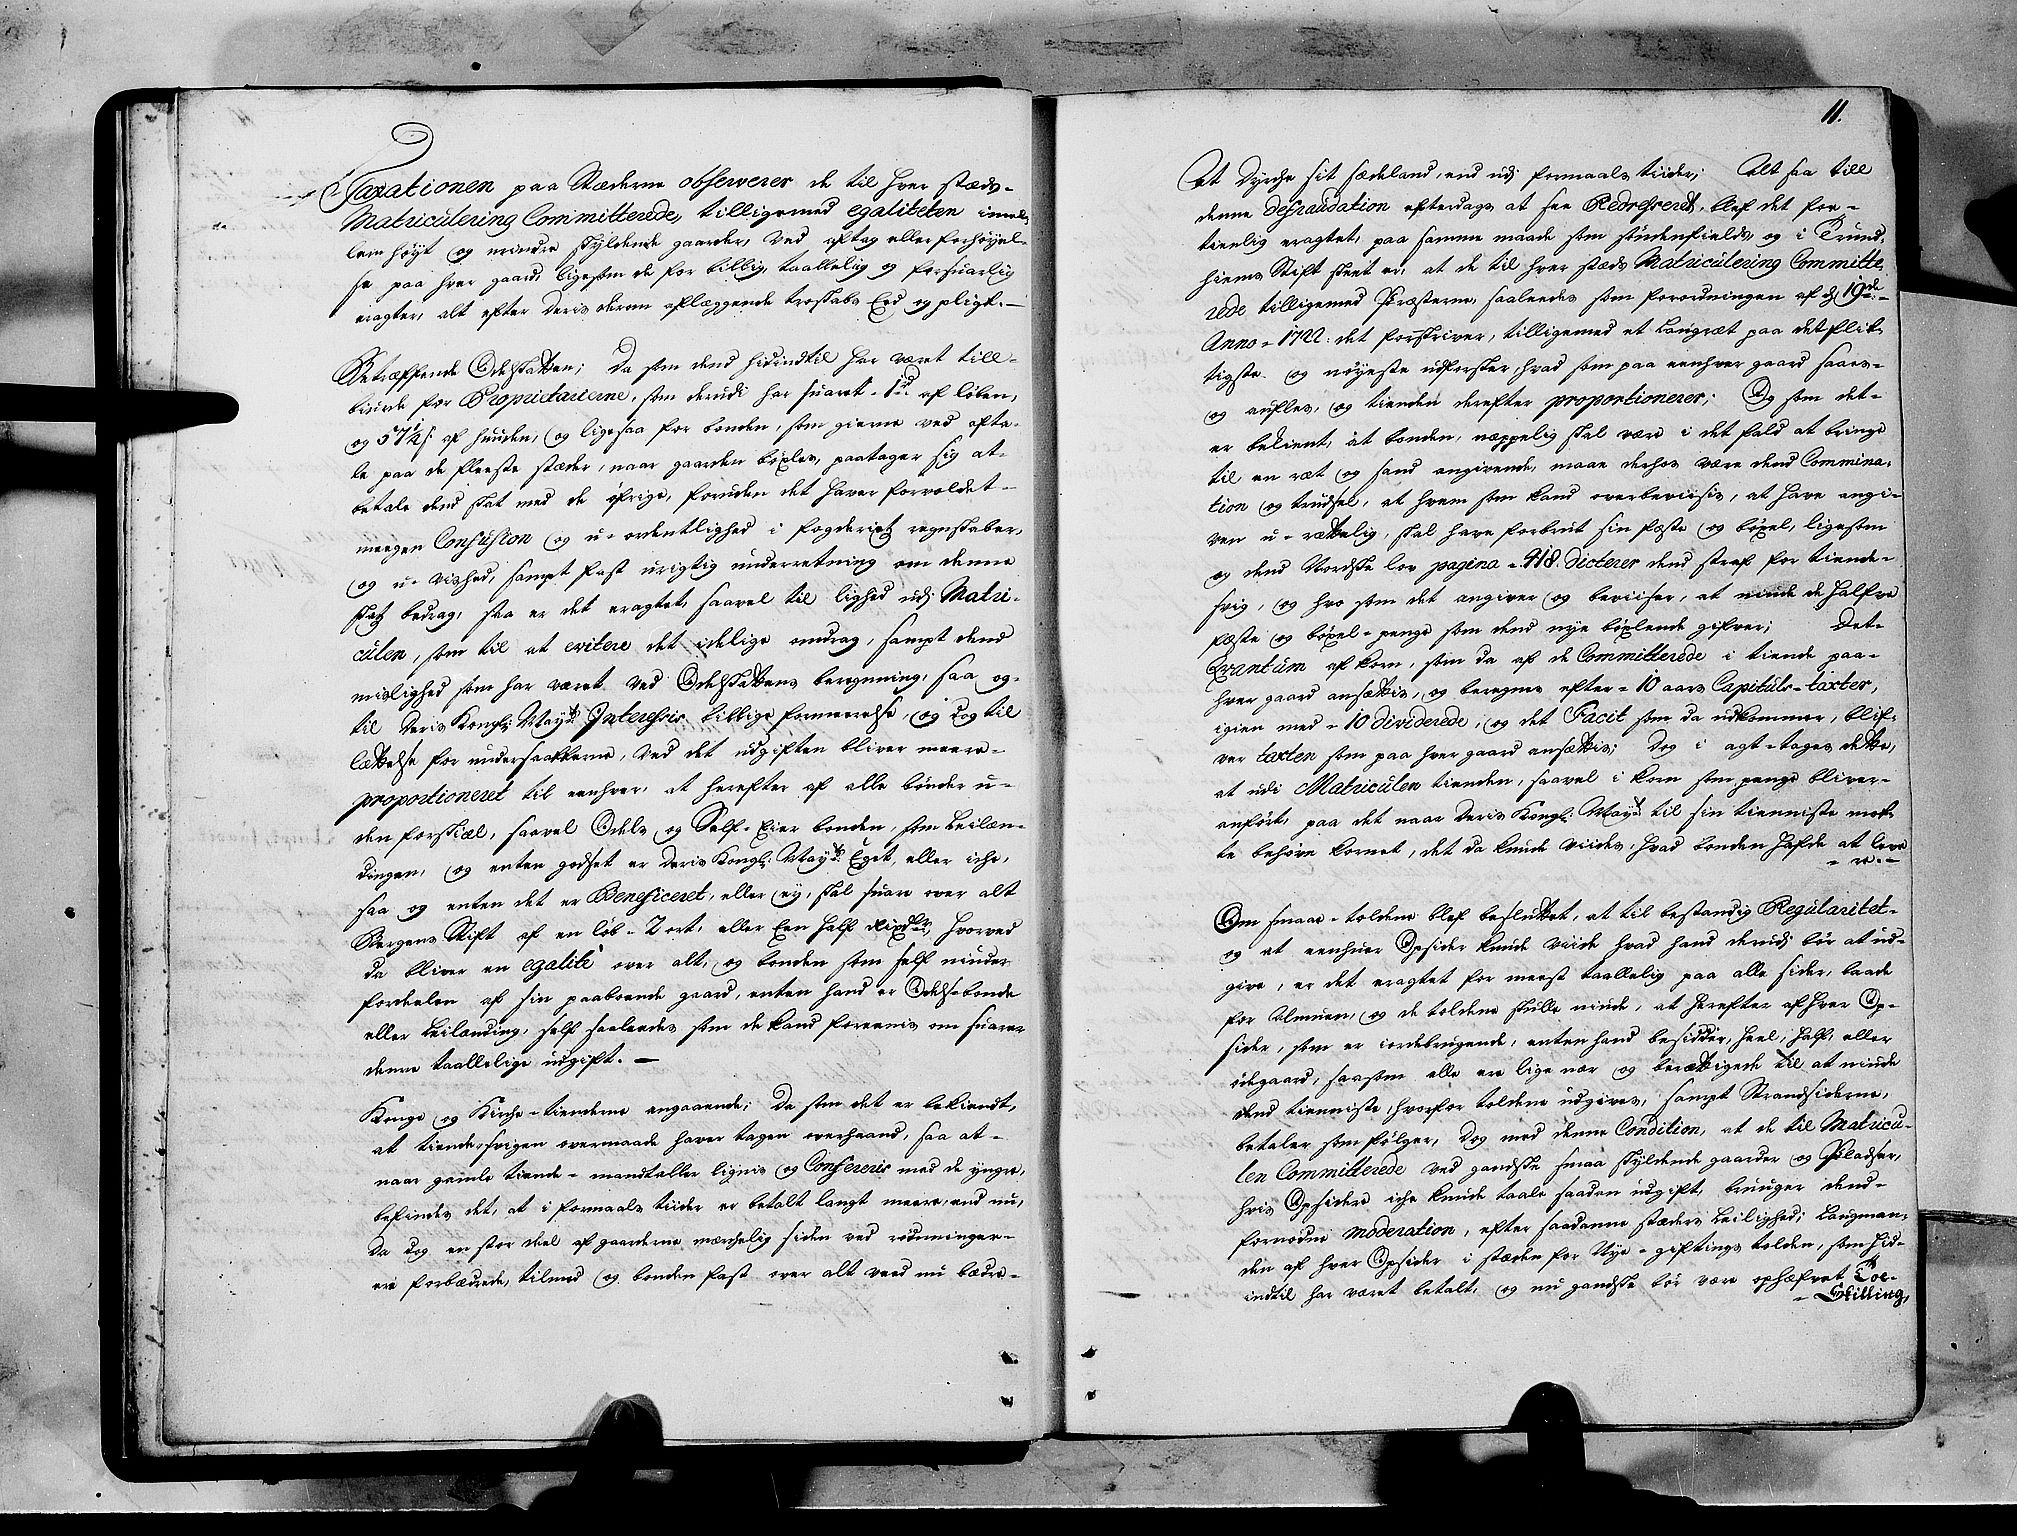 Taxationen paa Stæderne observerer de til hver stæds-
Matriculering Committerede, tilligemed egaliteten imel-
lem høyt og mindre skyldende gaarder, ved aftag eller forhøyel-
se paa hver gaard, ligesom de for billig, taallelig og forsuarlig
eragter, alt efter deris derom aflæggende troskabs Eed og pligt.
Betræffende Odelskatten; Da som dend hidindtil har været till-
biude for Proprietarierne, som derudi har suaret - 1 d af løben,
og 57½ s: af huuden, og ligesaa for bonden, som gierne ved ofta-
le paa de fleeste stæder, naar gaarden bøxles, paatager sig at-
betale dend skat med de øfrige, foruden det haver forvoldet-
meegen Confusion og u-ordentlighed i fogderiets regnskaber,
og u-vished, sampt fast urigtig underretning om denne
skatz bedrag, saa er det eragtet, saavel til lighed udj Matri-
culen, som til at evitere det idelige omdrag, sampt dend
mislighed som har været ved Odelskattens beregning, saa og-
til deris Kongl: Mayts Interessis billige formeerelse, og dog til
lættelse for undersaatterne, ved det udgiften bliver meere-
proportioneret til eenhver, at herefter af alle bønder u-
den forskiæl, saavel Odels og Self-Eier bonden, som Leilæn-
dingen, og enten godset er deris Kongl: Mayts Eget, eller iche,
saa og enten det er Beneficeret, eller ey, skal suare over alt
Bergens Stift af en løb - 2 ort, eller Een half rixdlr, hvorved
da bliver en egalité over alt, og bonden som self niuder
fordeelen af sin paaboende gaard, enten hand er Odelsbonde
eller Leilænding, self saaledes som de kand foreenis om suarer
denne taallelige udgift.
Konge og Kirche-tienderne angaaende; Da som det er bekiendt,
at tiende-svigen overmaade haver tagen overhaand, saa at-
naar gamle tiende-mandtaller lignis og Confereris med de yngre,
befindes det, at i formaals tiider er betalt langt meere, end nu,
da dog en stor deel af gaarderne mærchelig siden ved rødninger-
ere forbædrede, tilmed og bonden fast over alt veed nu bædre-
11.
At dyrche sit sædeland, end udj formaals tiider; Alt saa till
denne defraudation efterdags at faa Redresseret, blef det for-
tienlig eragtet, paa samme maade som sūdenfields og i Trund-
hiems Stift skeet er, at de til hver stæds Matriculering Committe-
rede tilligemed Præsterne, saaledes som Forordningen af d 19de
Anno - 1722: det forskriver, tilligemed et Laugræt paa det flit-
tigste og nøyeste udforsker, hvad som paa eenhver gaard saaes-
og aufles, og tienden derefter proportionerer; Og som det-
er bekient, at bonden, neppelig skal være i det fald at bringe
til en ræt og sand angivende, maae derhos være dend Commina-
tion og trudsel, at hvem som kand overbeviisis, at have angi-
ven u-rættelig, skal have forbrut sin fæste og bøxel, ligesom
og dend Nordske lov pagina - 418. dicterer dend straf for tiende-
svig, og hvo som det angiver og beviiser, at niude de halfve
fæste og bøxel-penge som dend nye bøxlende gifver; Det-
Qvantum af korn, som da af de Committerede i tiende paa-
hver gaard ansættis, og beregnes efter - 10 aars Capituls-taxter,
igien med - 10 dividerede, og det Facit som da udkommer, blif-
ver taxten som paa hver gaard ansættis; Dog i agt-tages dette,
at udi Matriculen tienden, saavel i korn som penge bliver-
anført, paa det naar deris Kongl: Mayt til sin tienniste maat-
te behøve kornet, det da kunde viides, hvad bonden hafde at leve-
re.
Om smaae-toldene blef besluttet, at til bestandig Regularitet-
og at eenhver Opsider kunde viide hvad hand derudj bør at ud-
give, er det eragtet for meest taallelig paa alle sider, baade
for Almuen, og de toldene skulle niude, at herefter af hver Op-
sider, som er iordebrugende, enten hand besidder, heel, half, eller
ødegaard, saasom alle ere lige nær og berættigede til at niude
dend tienniste, hvorfor toldene udgives, sampt Strandsiderne,
betaler som følger, dog med denne Condition, at de til Matricu-
len Committerede ved gandske smaa skyldende gaarder og Pladser,
hvis Opsidere iche kunde taale saadan udgift, bruuger dend-
fornødne moderation, efter saadanne stæders Leilighed; Laugman-
den af hver Opsider i stæden for Nye-giftings tolden, som hid-
indtil har været betalt, og nu gandske bør være ophæfvet Tol-
Skilling,